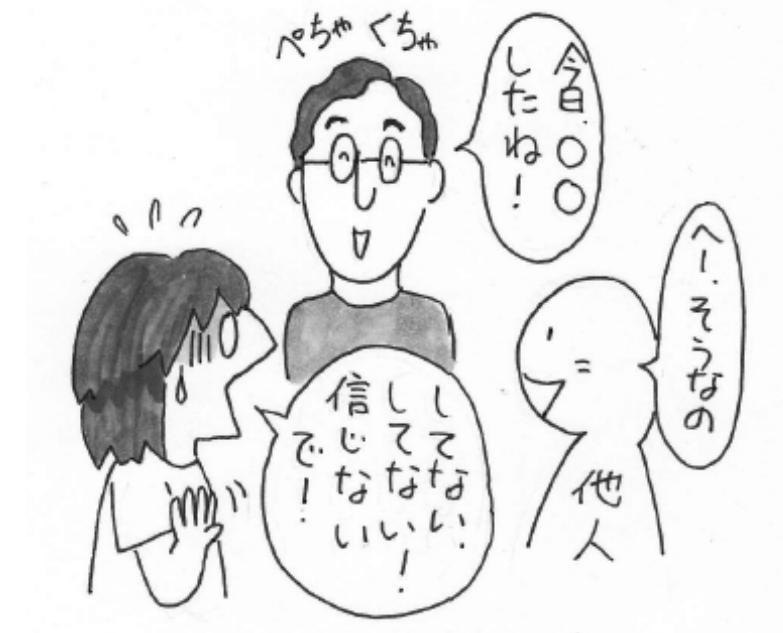 ぺちゃくちゃ
今日、○○
したね！
へー、そうなの
してない、
してない！
信じない
で！
他人